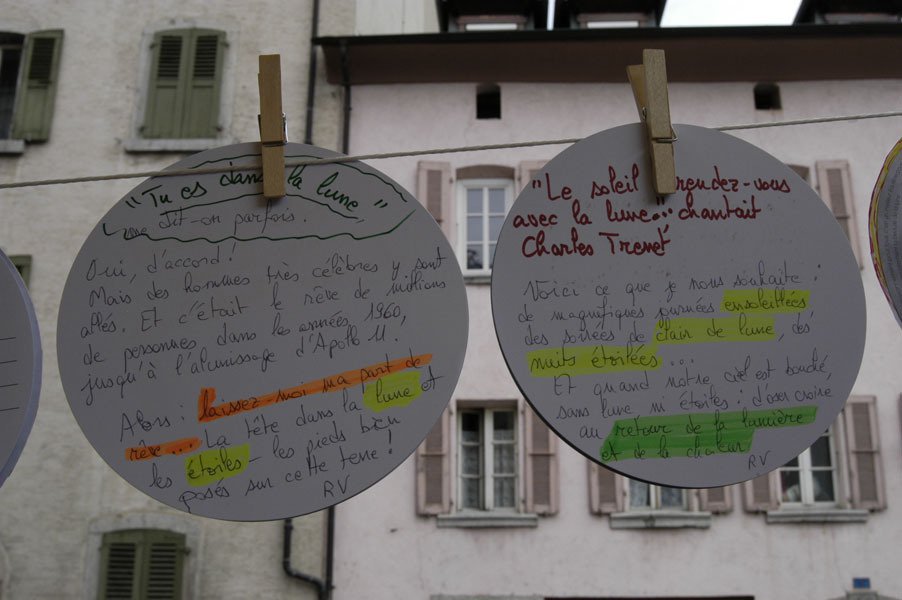 "Tu es dans la lune"
me dit-on parfois.
Oui, d'accord!
Mais des hommes très célèbres y sont
allés. Et c'était le rêve de millions
de personnes dans les années 1960,
jusqu'à l'alunissage d'Apollo 11.
Alors : laissez-moi ma part de
rêve... La tête dans la lune et
les étoiles - les pieds bien
posés sur cette terre !
RV
"Le soleil rendez-vous
avec la lune... chantait
Charles Trenet
Voici ce que je nous souhaite :
de magnifiques journées ensoleillées
des soirées de clair de lune, des
nuits étoilées ...
Et quand notre ciel est bouché,
sans lune ni étoiles : d'oser croire
au retour de la lumière
et de la chaleur
RV